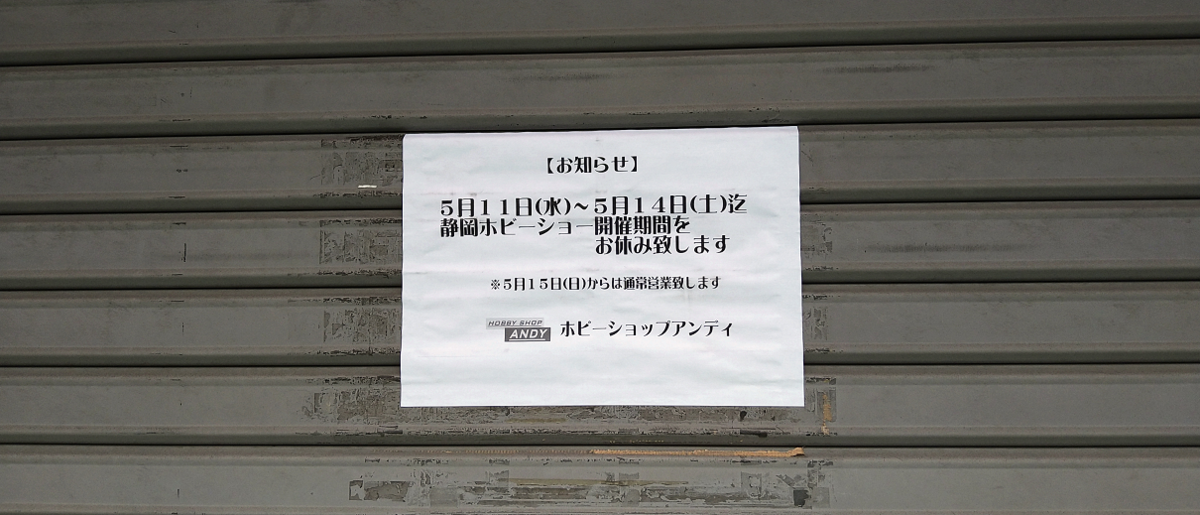 【お知らせ】
5月11日(水)～5月14日(土)迄
静岡ホビーショー開催期間を
お休み致します
※5月15日(日)からは通常営業致します
HOBBY SHOP
ANDY ホビーショップアンディ